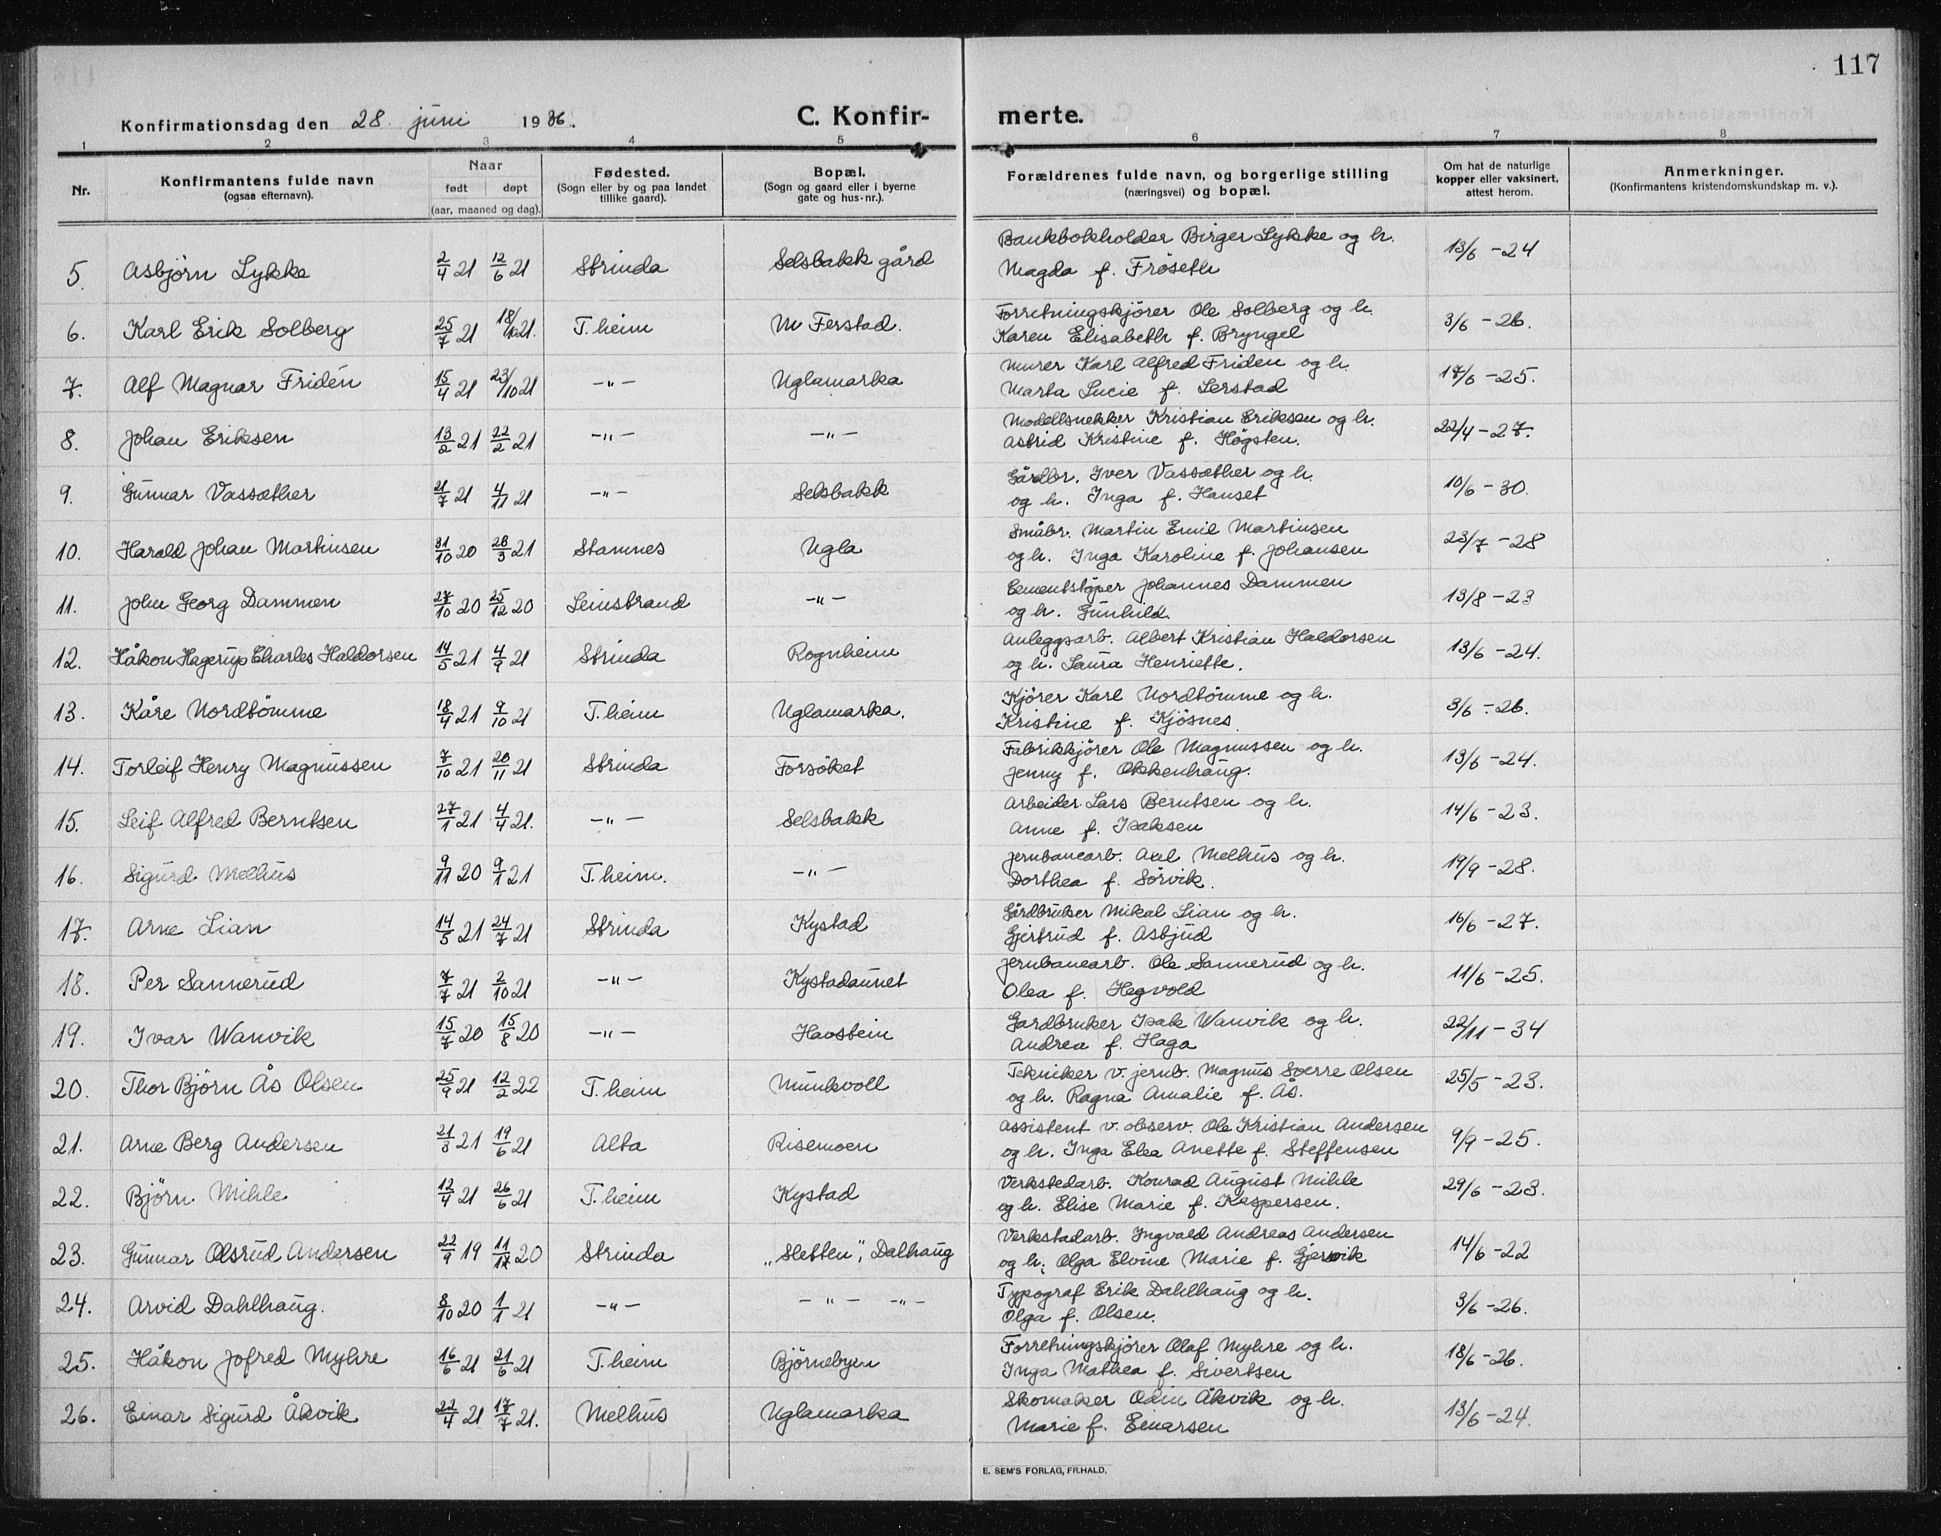 117
Konfirmationsdag den 28. juni 1936.
C. Konfirmerte.
1 2 3 4 5 6 7 8
Nr.
Konfirmantens fulde navn
(ogsaa efternavn).
Naar
født døpt
(aar, maaned og dag).
Fødested.
(Sogn eller by og paa landet
tillike gaard).
Bopæl.
(Sogn og gaard eller i byerne
gate og hus-nr.).
Forældrenes fulde navn, og borgerlige stilling
(næringsvei) og bopæl.
Om hat de naturlige
kopper eller vaksinert,
attest herom.
Anmerkninger.
(Konfirmantens kristendomskundskap m. v.).
5. Asbjörn Lykke 2/4 21 12/6 21 Strinda Selsbakk gård Bankbokholder Birger Lykke og h.
Magda f. Fröseth 13/6-24
6. Karl Erik Solberg 25/7 21 T.heim M Ferstad. Forretningskjörer Ole Solberg og h.
Karen Elisabeth f. Bryngel 3/6-26.
7. Alf Magnar Fridén 15/4 21 23/10 21 -"- Uglamarka Murer Karl Alfred Friden og h.
Marta Lucie f. Lerstad 17/6-25.
8. Johan Eriksen 13/2 21 22/2 21 -"- -"- Modellsnekker Kristian Eriksen og h.
Astrid Kristine f. Högsten. 22/4-27.
9. Gunnar Vassæther 21/7 21 4/11 21 -"- Selsbakk Gårdbr. Iver Vassæther og h.
og h. Inga f. Hanset 10/6-30.
10. Harald Johan Martinsen 31/10 20 28/3 21 Stamnes Ugla Småbr. Martin Emil Martinsen
og h. Inga Karoline f. Johansen 23/7-28
11. John Georg Dammen 27/10 20 25/12 20 Leinstrand -"- Cementstöper Johannes Dammen
og h. Gunhild 13/8-23
12. Håkon Hagerup Charles Haldorsen 14/5 21 4/9 21 Strinda Rognheim Anleggsarb. Albert Kristian Haldorsen
og h. Laura Henriette. 13/6-24.
13. Kåre Nordtömme 18/4 21 9/10 21 T.heim Uglamarka. Kjörer Karl Nordtömme og h.
Kristine f. Kjösnes 3/6-26.
14. Torleif Henry Magnussen 7/10 21 20/11 21 Strinda Forsöket Fabrikkjörer Ole Magnussen og h.
Jenny f. Okkenhaug. 13/6-24.
15. Leif Alfred Berntsen 27/1 21 4/4 21. -"- Selsbakk Arbeider Lars Berntsen og h.
Anne f. Isaksen 14/6-23.
16. Sigurd Melhus 9/11 20 9/1 21 T.heim. -"- Jernbanearb. Axel Melhus og h.
Dorthea f. Sörvik. 19/9-28.
17. Arne Lian 14/5 21 24/7 21 Strinda Kystad Gårdbruker Mikal Lian og h.
Gjertrud f. Asbjud 16/6-27.
18. Per Sannerud 7/7 21 2/10 21 -"- Kystadaunet Jernbanearb. Ole Sannerud og h.
Olea f. Hegvold 11/6-25.
19. Ivar Wanvik 15/7 20 15/8 20 -"- Havstein Gardbruker Isak Wanvik og h.
Andrea f. Haga 22/11-34
20. Thor Björn Ås Olsen 25/9 21 12/2 22 T.heim Munkvoll Tekniker v. jernb. Magnus Sverre Olsen
og h. Ragna Amalie f. Ås. 25/5-23.
21. Arne Berg Andersen 21/3 21 19/6 21 Alta Risemoen Assistent v. observ. Ole Kristian Andersen
og h. Inga Elea Anette f. Steffensen 9/9-25.
22. Björn Mihle 12/4 21 26/6 21 T.heim Kystad Verkstedarb. Konrad August Mihle
og h. Elise Marie f. Kaspersen. 29/6-23.
23. Gunnar Olsrud Andersen 22/9 19 20 Strinda "Sletten", Dalhaug Verkstadarb. Ingvald Andreas Andersen
og h. Olga Elvine Marie f. Gjervik 14/6-22
24. Arvid Dahlhaug. 8/10 20 1/1 21 -"- -"- -"- Typograf Erik Dahlhaug og h.
Olga f. Olsen. 3/6-26.
25. Håkon Jofred Myhre 16/6 21 21/6 21 T.heim Björnebyen Forretningskjörer Olaf Myhre og h.
Inga Mathea f. Sivertsen 18/6-26.
26. Einar Sigurd Åkvik 22/4 21 17/7 21. Melhus Uglamarka Skomaker Odin Åkvik og h.
Marie f. Einarsen 13/6-24.
E. SEM'S FORLAG, FR.HALD.